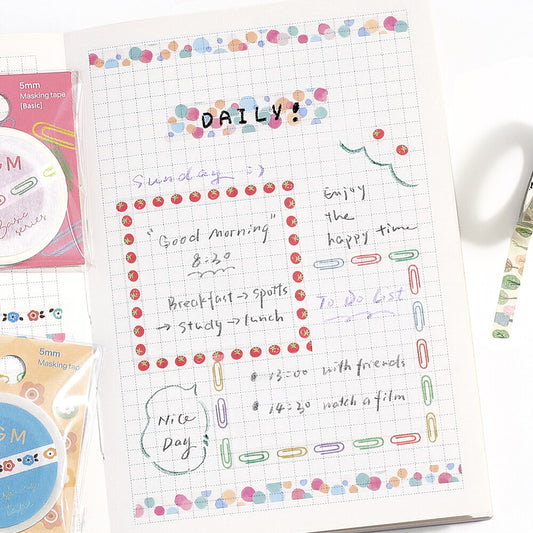 5mm
Masking tape
[Basic]
GM
Basic
series
5mm
Masking tape
GM
DAILY!
Sunday :)
"Good Morning"
8:30
Breakfast → spotts
→ study → lunch
Enjoy
the
happy time
To Do List
13:00 with friends
14:30 watch a film
Nice
Day